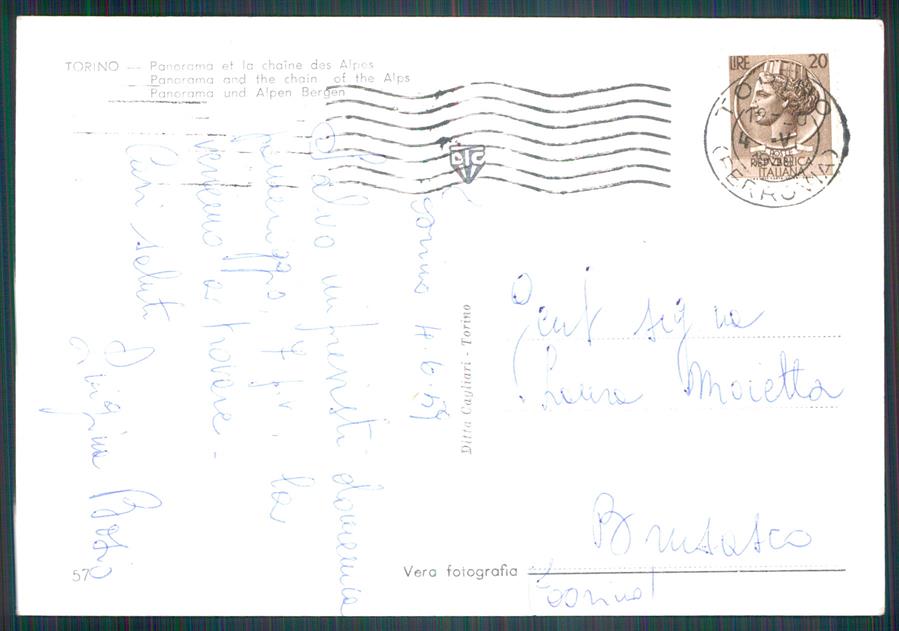 TORINO — Panorama et la chaîne des Alpes
Panorama and the chain of the Alps
Panorama und Alpen Bergen
LIRE 20
POSTE
REPVBBLICA
ITALIANA
TORINO
FERROVIA
Torino 4.6.59
Salvo imprevisti domenica
pomeriggio, 7 la
verremo a trovare -
Cari saluti
Luigina Bosio
Ditta Cagliari - Torino
Gent signa
Laura Moietta
Brusasco
Torino
57
Vera fotografia